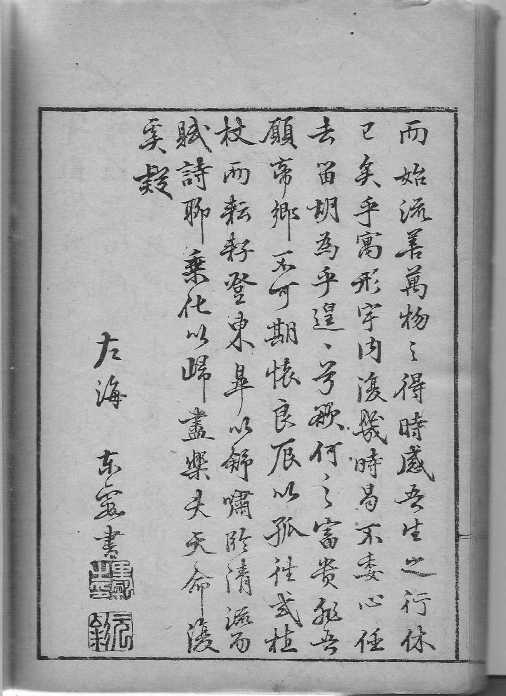 而始流善萬物之得時感吾生之行休
已矣乎寓形宇内復幾時曷不委心任
去留胡為乎遑〻兮欲何之富貴非吾
願帝鄉不可期懷良辰以孤往或植
杖而耘耔登東皋以舒嘯臨清流而
賦詩聊乗化以歸盡樂夫天命復
奚疑
左海 東書